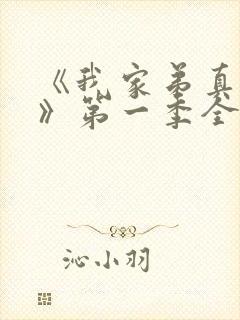 《我家弟真
》第一季全
沁小羽